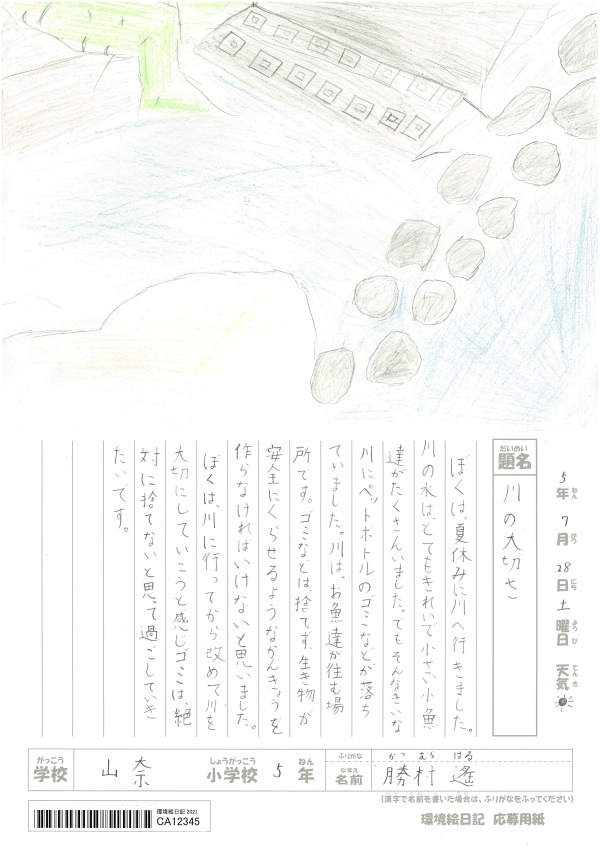 5年ねん7月がつ28日にち土曜日ようび天気てんき
題名だいめい
川の大切さ
ぼくは、夏休みに川へ行きました。
川の水は、とてもきれいで小さい小魚
達がたくさんいました。でもそんなきいな
川にペットボトルのゴミなどが落ち
ていました。川は、お魚達が住む場
所です。ゴミなどは、捨てず、生き物が
安全にくらせるようなかんきょうを
作らなければいけないと思いました。
ぼくは、川に行ってから改めて川を
大切にしていこうと感じゴミは、絶
対に捨てないと思って過ごしていき
たいです。
がっこう
学校 山奈 小学校 しょうがっこう 5 年 ねん
ふりがな かつ むら はる
なまえ
名前 勝村 遙
(漢字で名前を書いた場合は、ふりがなをふってください)
環境絵日記 2021
CA12345
環境絵日記 応募用紙